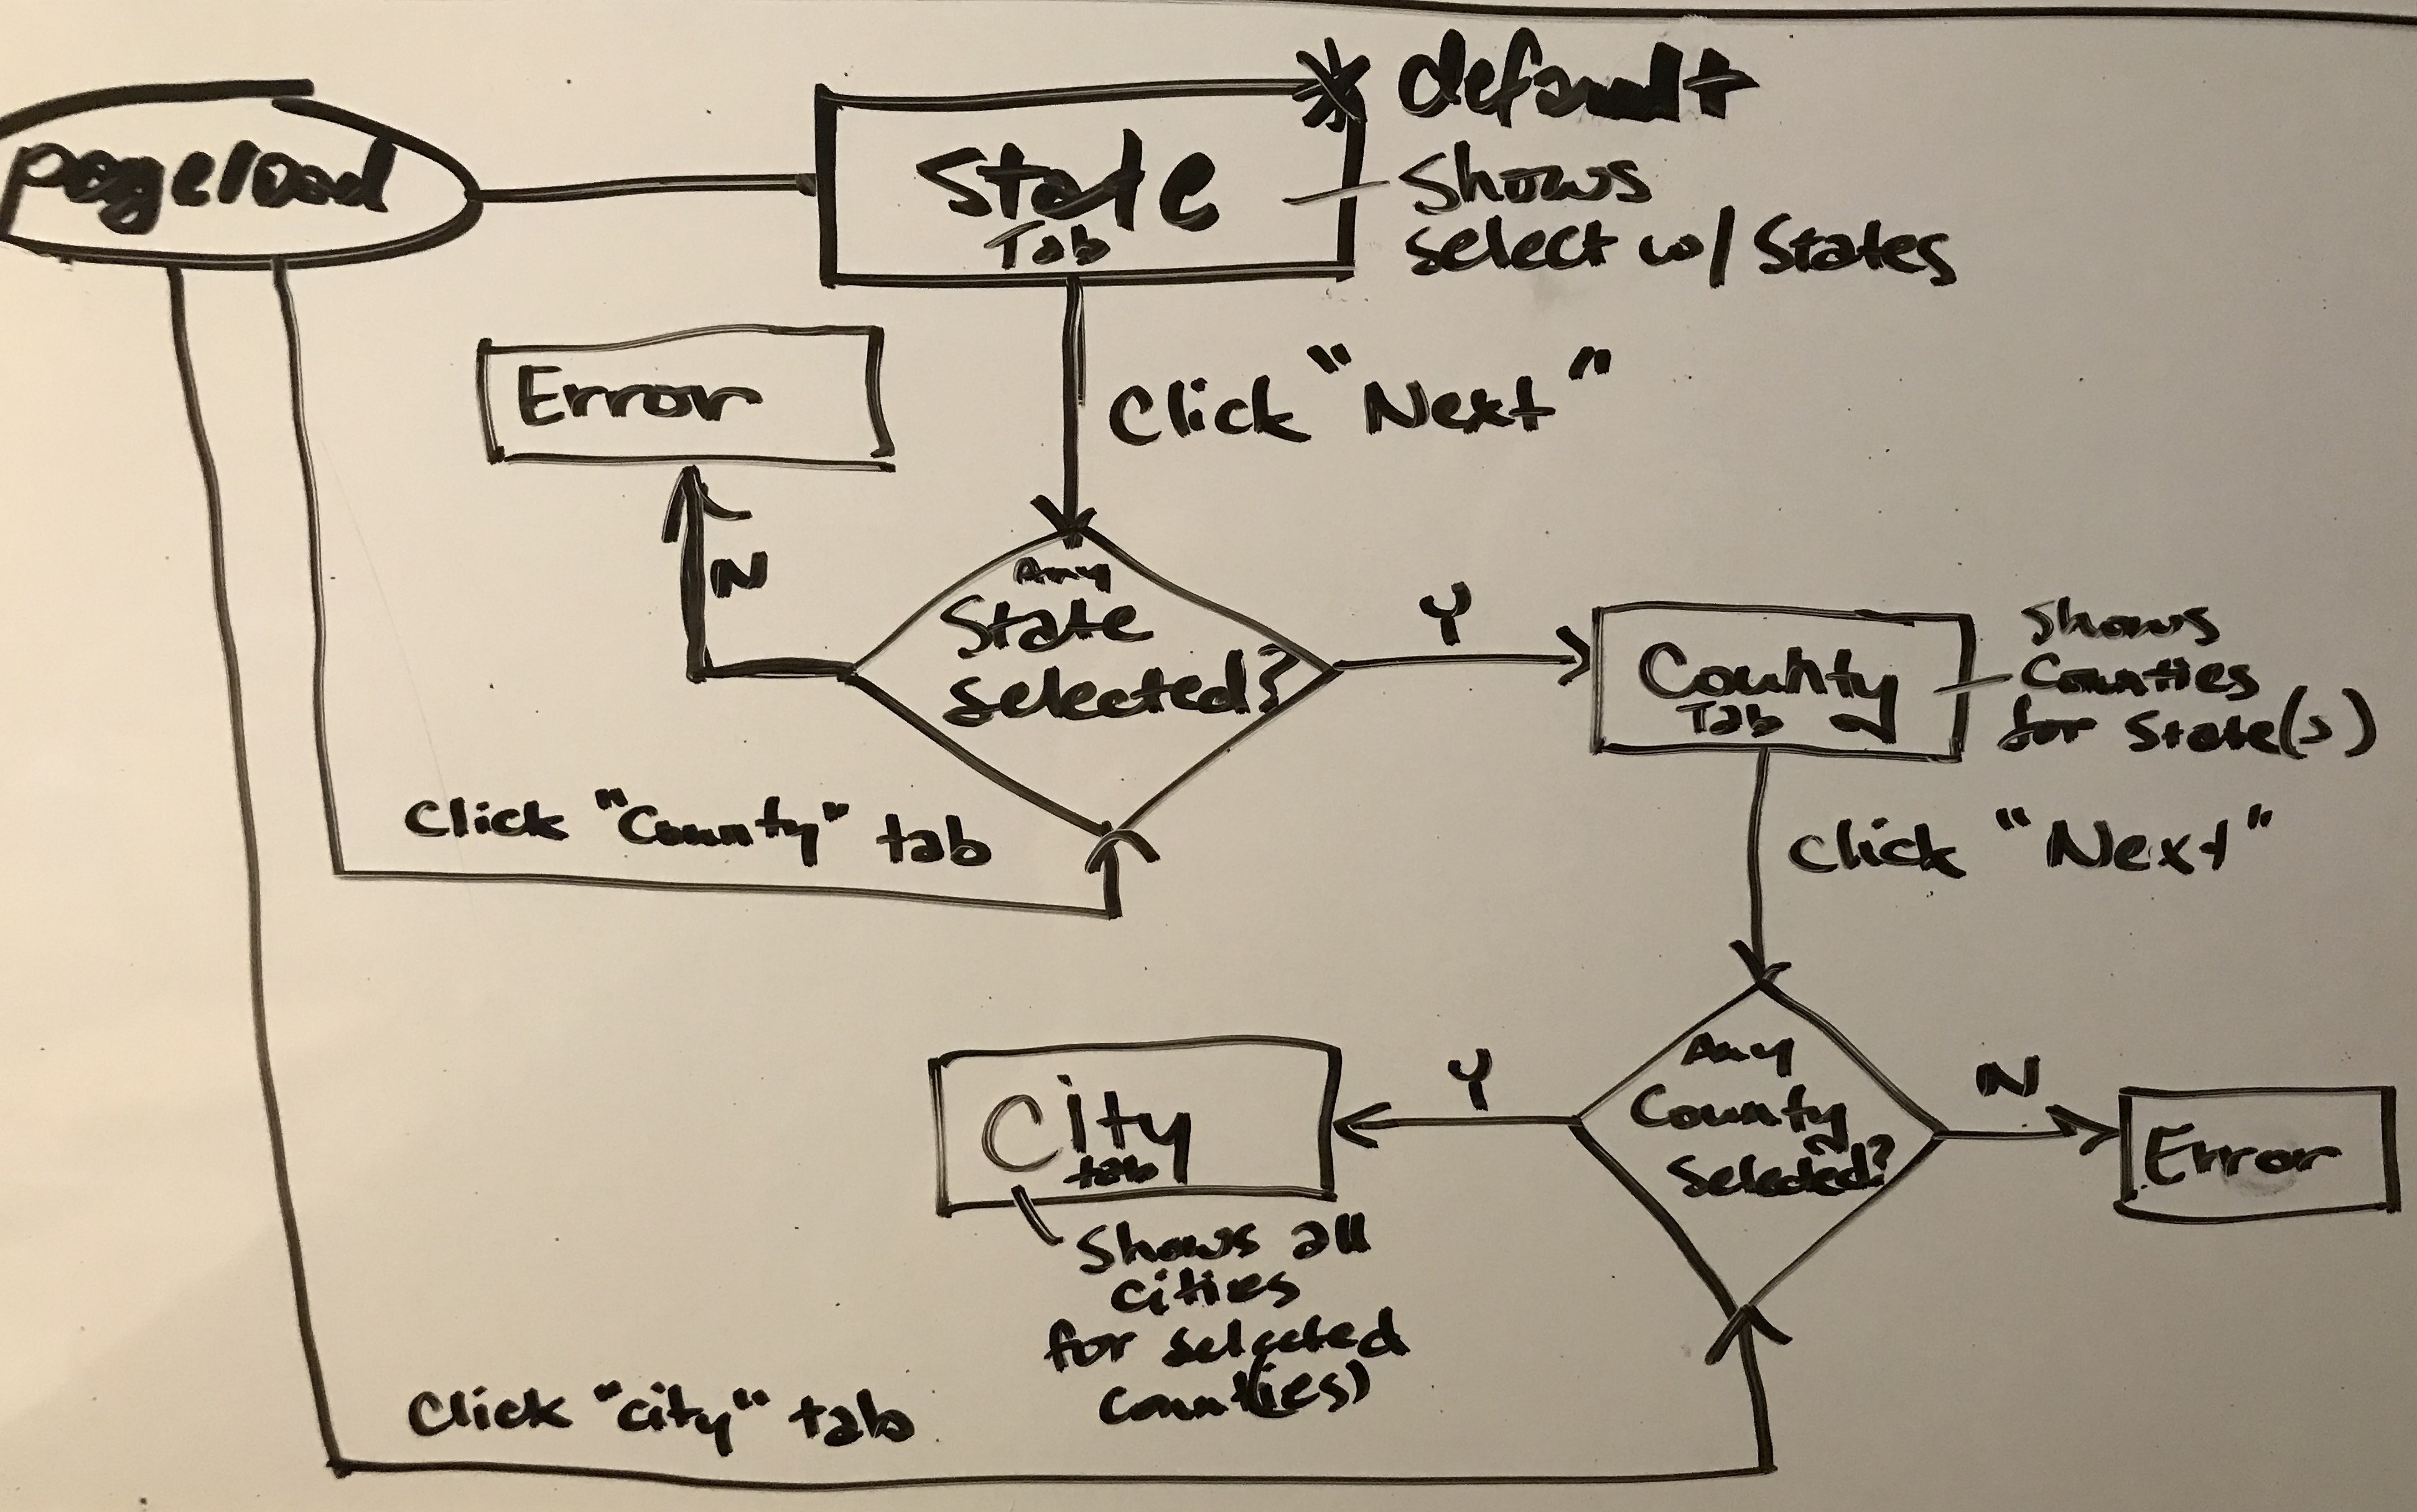 pageload
State
Tab
* default
Shows
select w/ States
Error
Click "Next"
N
Any
State
selected?
Y
County
Tab
Shows
Counties
for State(s)
Click "County" tab
Click "Next"
City
tab
Y
Any
County
Selected?
N
Error
Shows all
cities
for selected
count(ies)
Click "city" tab